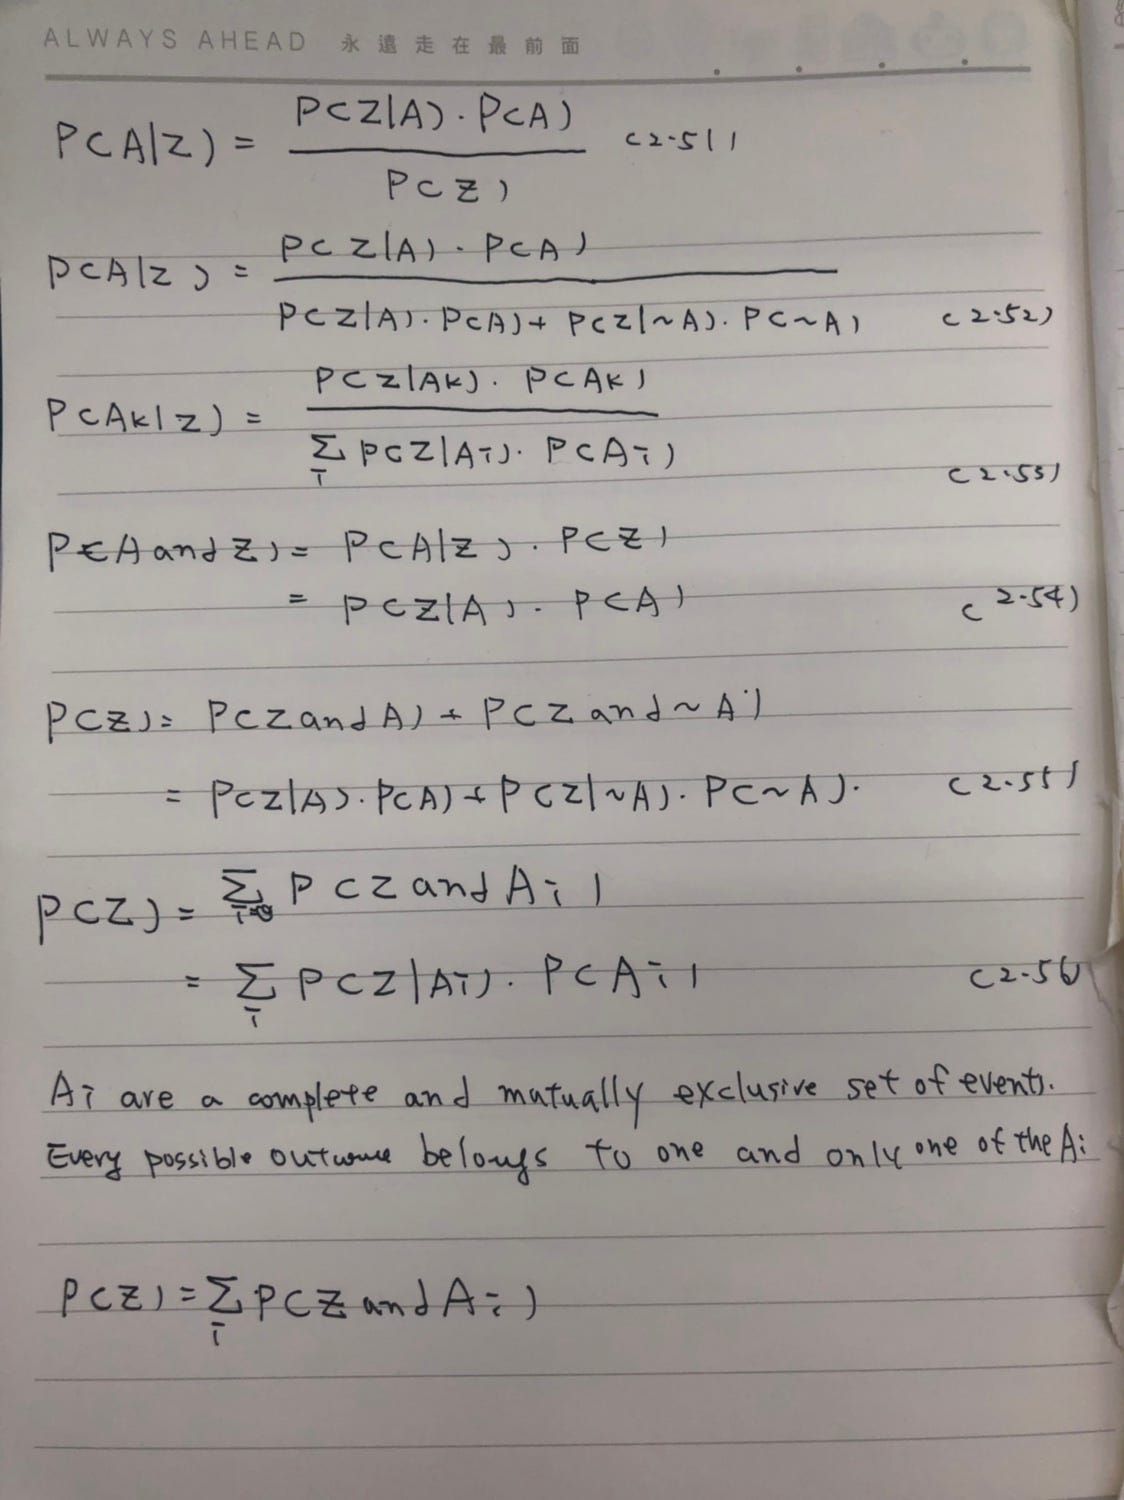 ALWAYS AHEAD 永遠走在最前面
P(A|Z) = P(Z|A)·P(A) / P(Z) (2.51)
P(A|Z) = P(Z|A)·P(A) / P(Z|A)·P(A) + P(Z|~A)·P(~A) (2.52)
P(AK|Z) = P(Z|AK)·P(AK) / Σi P(Z|Ai)·P(Ai) (2.53)
P(A and Z) = P(A|Z)·P(Z)
= P(Z|A)·P(A) (2.54)
P(Z) = P(Z and A) + P(Z and ~A)
= P(Z|A)·P(A) + P(Z|~A)·P(~A). (2.55)
P(Z) = Σi P(Z and Ai)
= Σi P(Z|Ai)·P(Ai) (2.56)
Ai are a complete and mutually exclusive set of events.
Every possible outcome belongs to one and only one of the Ai
P(Z) = Σi P(Z and Ai)